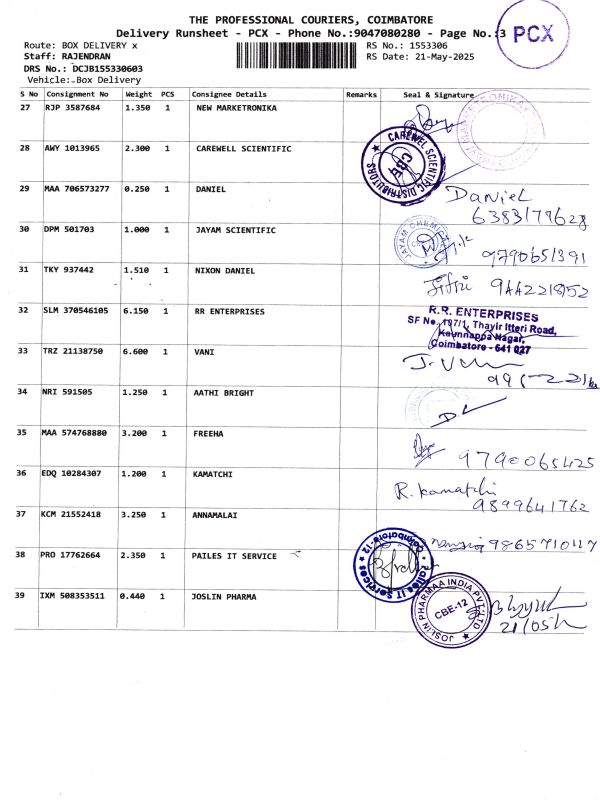 THE PROFESSIONAL COURIERS, COIMBATORE
Delivery Runsheet - PCX - Phone No.:9047080280 - Page No.:3
PCX
Route: BOX DELIVERY x
RS No.: 1553306
Staff: RAJENDRAN
RS Date: 21-May-2025
DRS No.: DCJB155330603
Vehicle: Box Delivery
S No Consignment No Weight PCS Consignee Details Remarks Seal & Signature
27 RJP 3587684 1.350 1 NEW MARKETRONIKA
28 AWY 1013965 2.300 1 CAREWELL SCIENTIFIC
CAREWEL SCIENTIFIC DISTRIBUTORS
CBE
29 MAA 706573277 0.250 1 DANIEL
Daniel
6383179628
30 DPM 501703 1.000 1 JAYAM SCIENTIFIC
JAYAM CHEMICALS
9790651391
31 TKY 937442 1.510 1 NIXON DANIEL
9442218952
32 SLM 370546105 6.150 1 RR ENTERPRISES
R.R. ENTERPRISES
SF No. 197/1, Thayir Itteri Road,
Karunnappa Nagar,
Coimbatore - 641 027
33 TRZ 21138750 6.600 1 VANI
34 NRI 591505 1.250 1 AATHI BRIGHT
35 MAA 574768880 3.200 1 FREEHA
9790065425
36 EDQ 10284307 1.200 1 KAMATCHI
R. Kamatchi
9899641762
37 KCM 21552418 3.250 1 ANNAMALAI
9865710117
38 PRO 17762664 2.350 1 PAILES IT SERVICE
Pailes IT Services
Coimbatore-12
39 IXM 508353511 0.440 1 JOSLIN PHARMA
JOSLIN PHARMAA INDIA PVT. LTD
CBE-12
21/05/